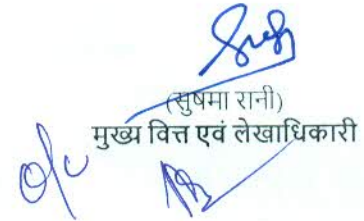 (सुषमा रानी)
मुख्य वित्त एवं लेखाधिकारी
O/c